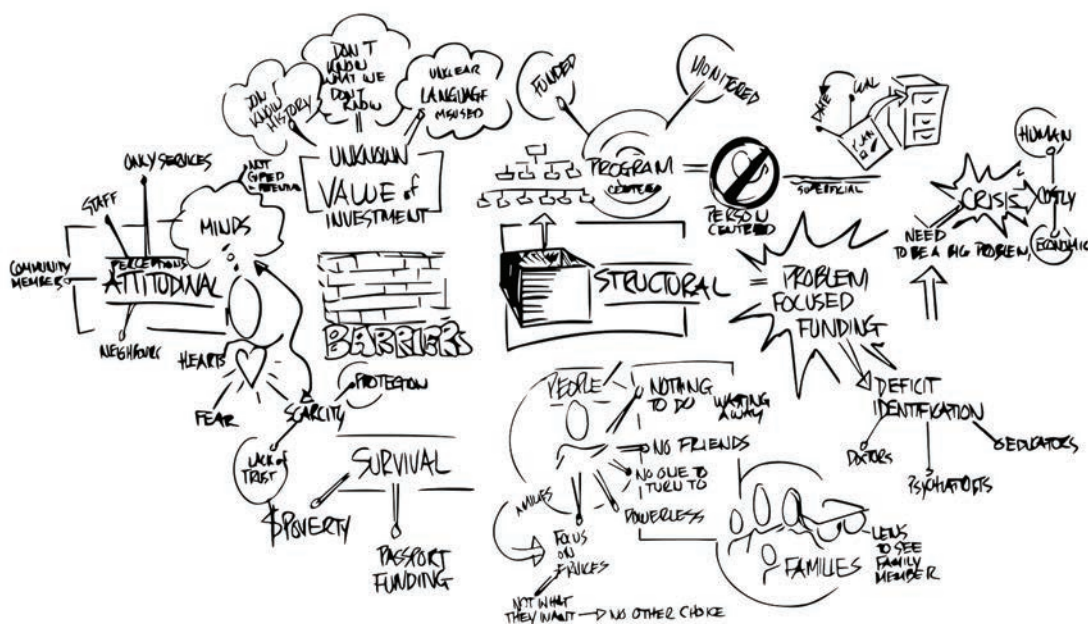 DON'T
KNOW
WHAT WE
DON'T
KNOW
DON'T
KNOW
HISTORY
UNCLEAR
LANGUAGE
MISUSED
UNKNOWN
VALUE of
INVESTMENT
ONLY SERVICES
STAFF
NOT
MINDS
COMMUNITY
MEMBERS
PERCEPTIONS
ATTITUDINAL
NEIGHBOURS
HEARTS
FEAR
SCARCITY
PROTECTION
LACK of
TRUST
SURVIVAL
$POVERTY
PASSPORT
FUNDING
BARRIERS
FUNDED
MONITORED
PROGRAM
CENTERED
=
PERSON
CENTRED
SUPERFICIAL
DATE
GOAL
PLAN
STRUCTURAL
=
PROBLEM
FOCUSED
FUNDING
NEED
TO BE A BIG PROBLEM,
CRISIS,
COSTLY
HUMAN
ECONOMIC
DEFICIT
IDENTIFICATION
DOCTORS
PSYCHIATRISTS
EDUCATORS
PEOPLE
NOTHING
TO DO
WASTING
AWAY
NO FRIENDS
NO ONE TO
TURN TO
POWERLESS
FAMILIES
FOCUS
ON
NOT WHAT
THEY WANT
NO OTHER CHOICE
FAMILIES
LENS
TO SEE
FAMILY
MEMBER